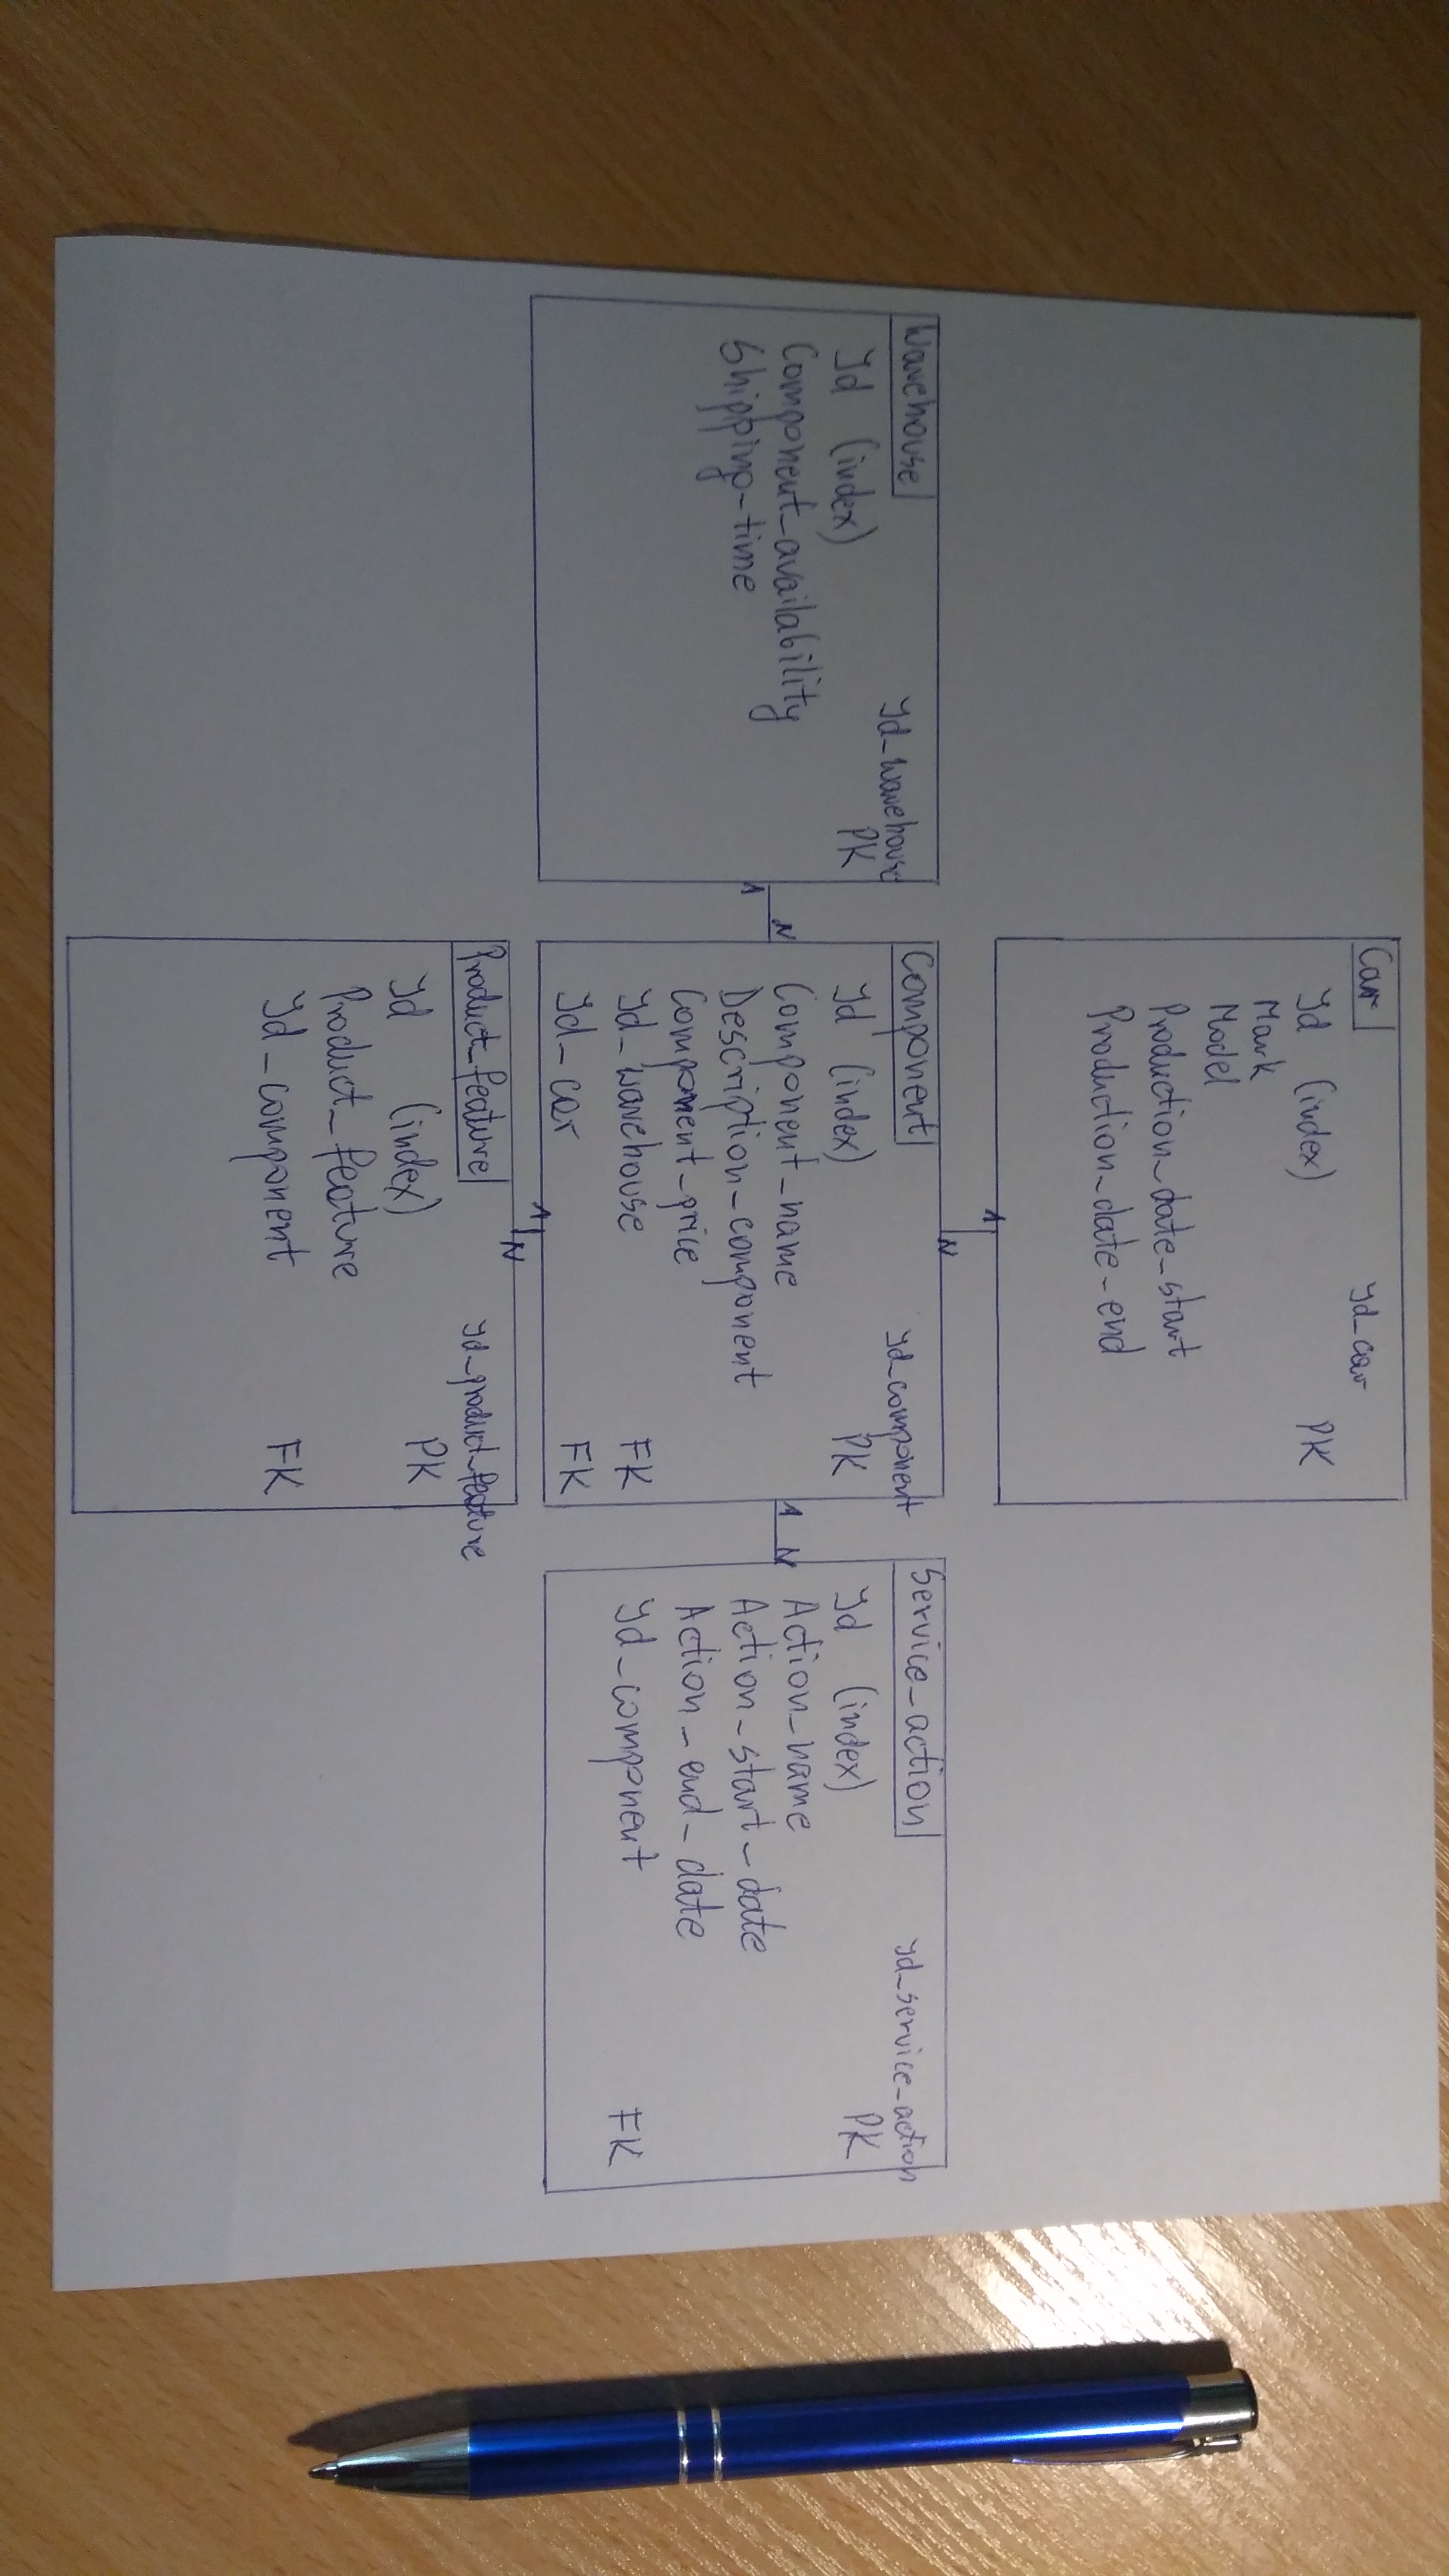 Car
Id_car
Id (index) PK
Mark
Model
Production_date_start
Production_date_end
1
N
Warehouse
Id_warehouse
Id (index) PK
Component_availability
Shipping_time
1
N
Component
Id_component
Id (index) PK
Component_name
Description_component
Component_price
Id_warehouse FK
Id_car FK
1
N
Service_action
Id_service_action
Id (index) PK
Action_name
Action_start_date
Action_end_date
Id_component FK
1
N
Product_feature
Id_product_feature
Id (index) PK
Product_feature
Id_component FK